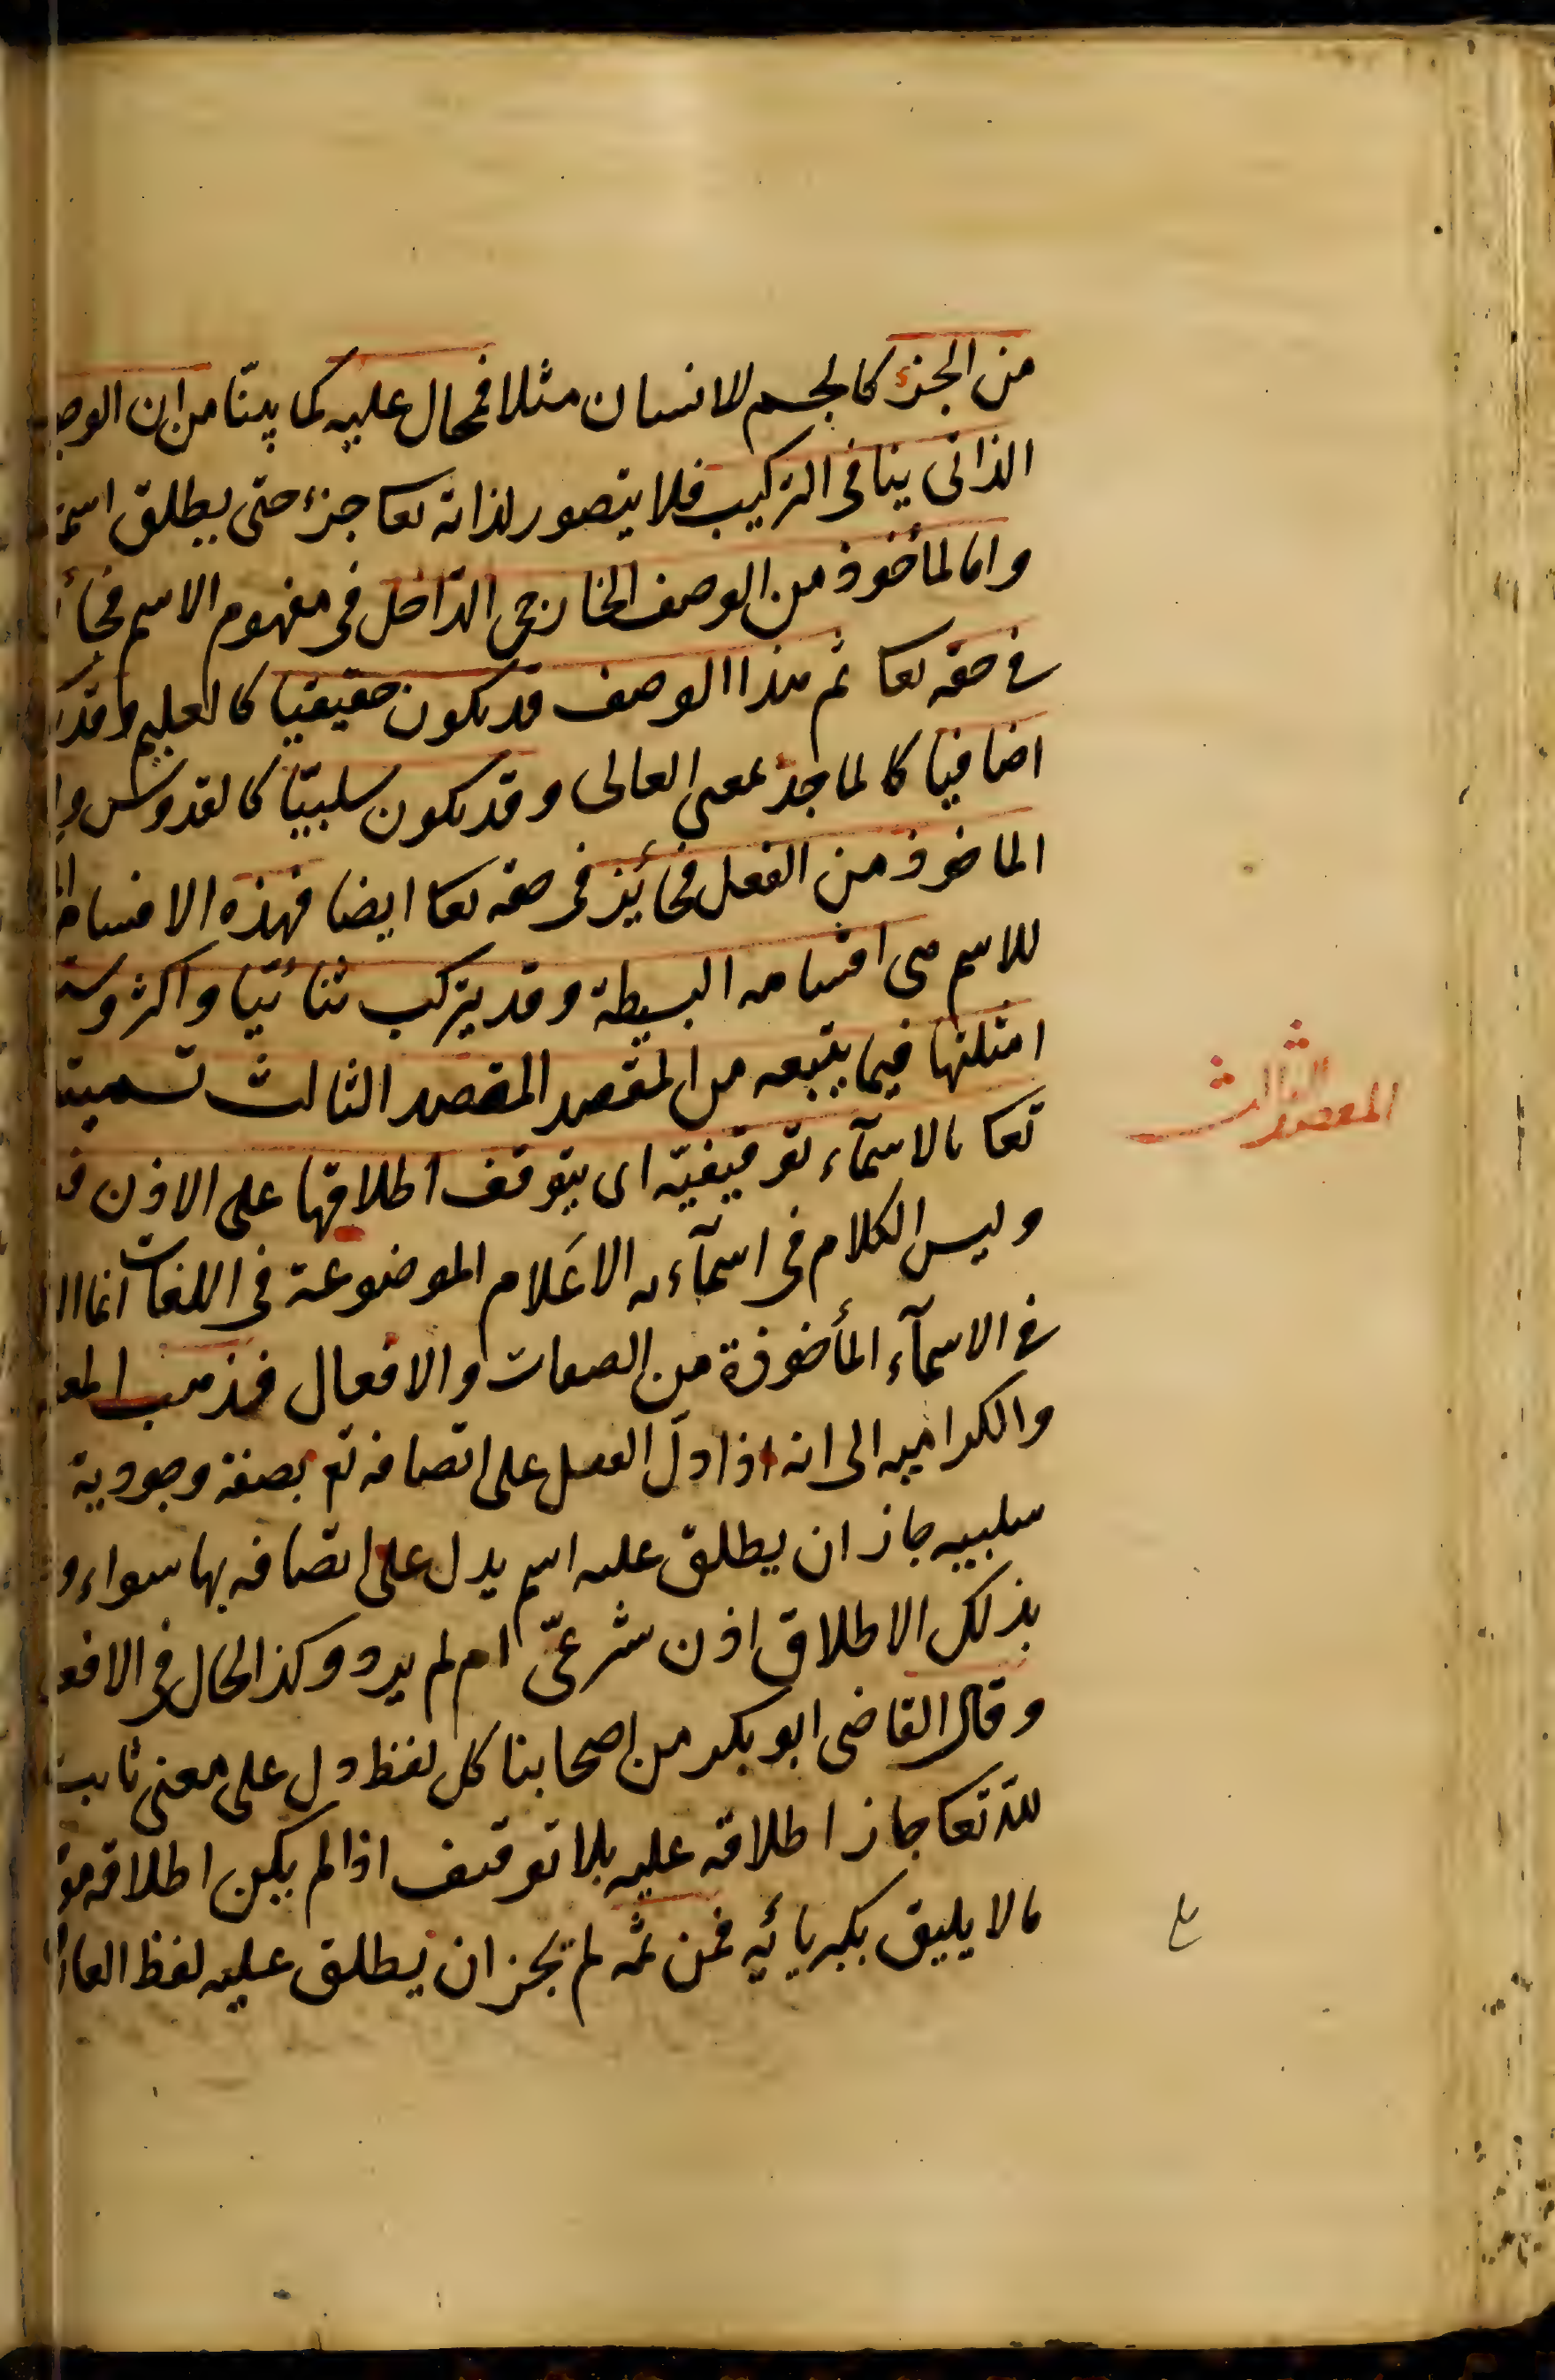 من الجزء كالجسم للانسان مثلا فمحال عليه كما بينّا من ان الوجو
الذاتى ينافى التركيب فلا يتصور لذاته تعا جزء حتى يطلق اسمه
واما المأخوذ من الوصف الخارجى الدّاخل فى مفهوم الاسم فجائز
فى حقه تعا ثم هذا الوصف قد يكون حقيقيا كالعليم وقد
اضافيا كالماجد بمعنى العالى وقد يكون سلبيّا كالقدوس واما
الماخوذ من الفعل فجائز فى حقه تعا ايضا فهذه الاقسام
للاسم هى اقسامه البسيطة وقد يتركب ثنائيّا واكثر وست
امثلتها فيما يتبعه من المقصد المقصد الثالث تسميته
تعا بالاسمآء توقيفيّة اى يتوقف اطلاقها على الاذن فيه
وليس الكلام فى اسمآءه الاعلام الموضوعة فى اللغات انما ال
فى الاسمآء المأخوذة من الصفات والافعال فذهب المعتز
والكراميه الى انه اذا دلّ العقل على اتصافه تع بصفة وجودية
سلبيه جاز ان يطلق عليه اسم يدل على اتصافه بها سواء و
بذلك الاطلاق اذن شرعىّ ام لم يرد وكذا الحال فى الافعا
وقال القاضى ابو بكر من اصحابنا كل لفظ دل على معنى ثابت
للّه تعا جاز اطلاقه عليه بلا توقيف اذا لم يكن اطلاقه مو
مالا يليق بكبريائه فمن ثمه لم يجز ان يطلق عليه لفظ العار
المقصد الثالث